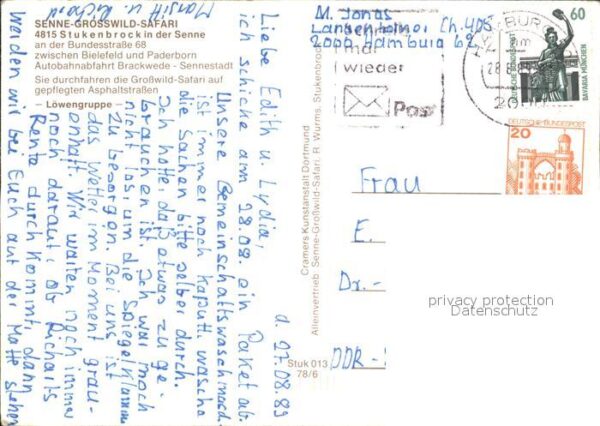 SENNE-GROSSWILD-SAFARI
4815 Stukenbrock in der Senne
an der Bundesstraße 68
zwischen Bielefeld und Paderborn
Autobahnabfahrt Brackwede - Sennestadt
Sie durchfahren die Großwild-Safari auf
gepflegten Asphaltstraßen
– Löwengruppe –
d. 27.08.89
Liebe Edith u. Lydia,
ich schicke am 28.08. ein Paket ab.
Unsere Gemeinschaftswaschmasch.
ist immer noch kaputt. wascha
die Sachen bitte selber durch.
Ich hoffe, daß etwas zu ge-
brauchen ist. Ich war noch
nicht los um die Spiegelklammern
zu besorgen. Bei uns ist
das Wetter im Moment grau-
enhaft. Wir warten noch immer
noch darauf, ob Richards
Rente durch kommt, dann
werden wir bei Euch auf der Matte stehen
Richard
Stuk 013
78/6
Cramers Kunstanstalt Dortmund
Alleinvertrieb Senne-Großwild-Safari, R. Wurms, Stukenbrock
M. Jonas
Langenhorner Ch. 405
2000 Hamburg 62
mal
wieder
Post
HAMBURG
60
DEUTSCHE BUNDESPOST
BAVARIA MÜNCHEN
DEUTSCHE BUNDESPOST
20
Frau
E.
Dr.-
DDR -
privacy protection
Datenschutz